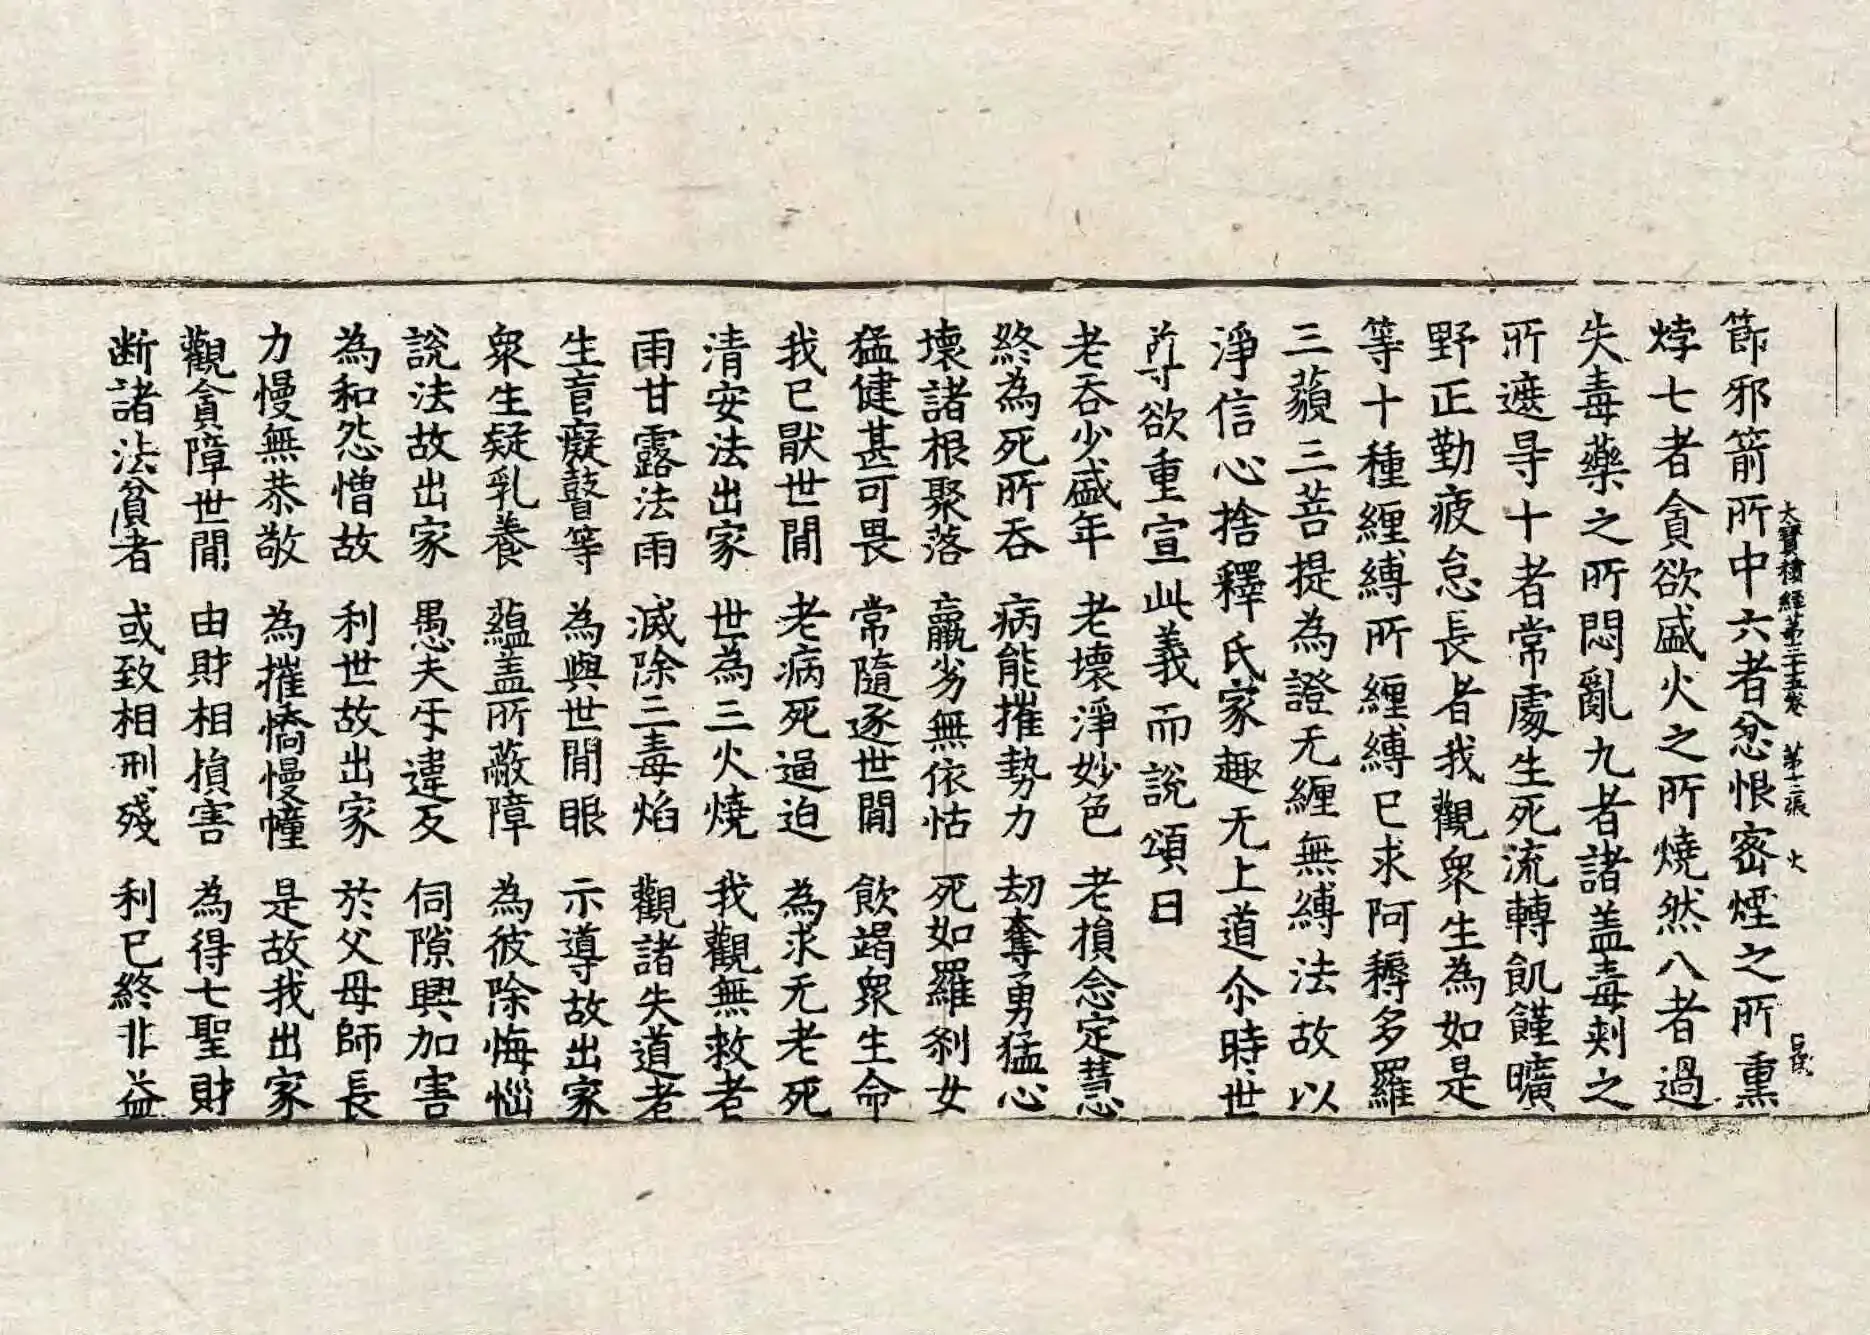 大寶積經第三十五卷 第十二張 火
節邪箭所中六者忿恨密煙之所熏
㶿七者貪欲盛火之所燒然八者過
失毒藥之所悶亂九者諸盖毒刾之
所遮㝵十者常處生死流轉飢饉曠
野正勤疲怠長者我觀衆生為如是
等十種纏縛所纏縛已求阿耨多羅
三藐三菩提為證无纏無縛法故以
淨信心捨釋氏家趣无上道尒時世
尊欲重宣此義而說頌曰
老吞少盛年 老壞淨妙色 老損念定慧
終為死所吞 病能摧勢力 劫奪勇猛心
壞諸根聚落 羸劣無依怙 死如羅刹女
猛健甚可畏 常隨逐世閒 飲竭衆生命
我已猒世閒 老病死逼迫 為求无老死
清安法出家 世為三火燒 我觀無救者
雨甘露法雨 滅除三毒焰 觀諸失道者
生盲癡瞽等 為與世閒眼 示導故出家
衆生疑乳養 蘊盖所蔽障 為彼除悔惱
說法故出家 愚夫㸦違反 伺隙興加害
為和怨憎故 利世故出家 於父母師長
力慢無恭敬 為摧憍慢幢 是故我出家
觀貪障世閒 由財相損害 為得七聖財
断諸法貧者 或致相刑殘 利已終非益